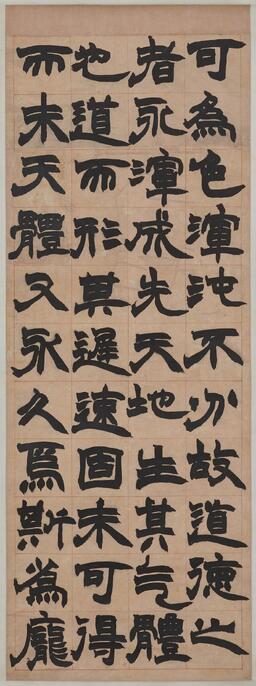 可為色渾沌不分故道德之
者永渾成先天地生其气體
也道而形其遲速固未可得
而末天體又永久焉斯為龐